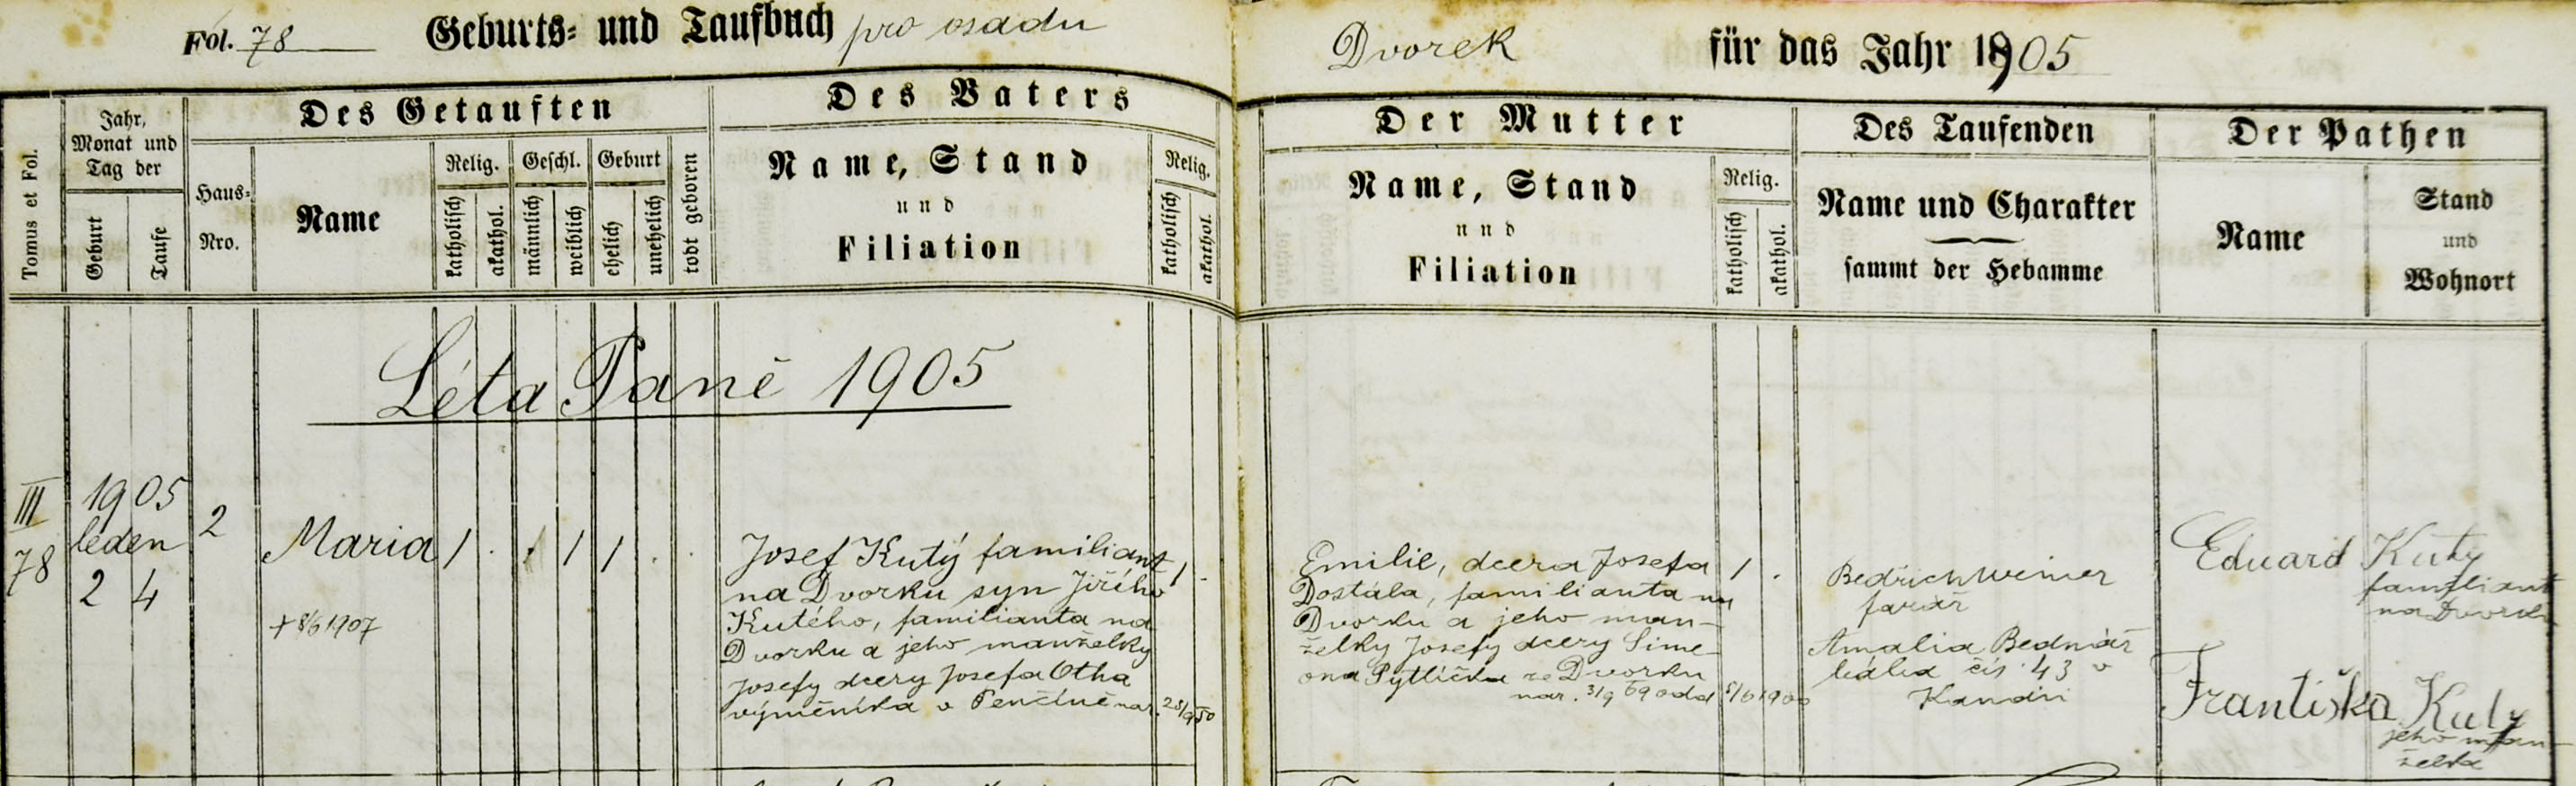 Fol. 78 Geburts= und Taufbuch pro osadu
Dvorek für das Jahr 1905
Tomus et Fol.
Jahr,
Monat und
Tag der
Geburt
Taufe
Des Getauften
Haus=
Nro.
Name
Relig.
katholisch
akathol.
Geschl.
männlich
weiblich
Geburt
ehelich
unehelich
todt geboren
Des Vaters
Name, Stand
und
Filiation
Relig.
katholisch
akathol.
Der Mutter
Name, Stand
und
Filiation
Relig.
katholisch
akathol.
Des Taufenden
Name und Charakter
sammt der Hebamme
Der Pathen
Name
Stand
und
Wohnort
Léta Paně 1905
III
78
1905
leden
2 4
2
Maria 1 . . 1 1 . .
+ 8/6 1907
Josef Kutý familiant
na Dvorku syn Jiřího
Kutého, familianta na
Dvorku a jeho manželky
Josefy dcery Josefa Otha
výměníka v Penčině nar.
1 .
Emilie, dcera Josefa
Dostála, familianta na
Dvorku a jeho man-
želky Josefy dcery Sime-
ona Pytlíčka ze Dvorku
nar. 31/9 69 odd
1 .
Bedřich Weiner
farář
Amalia Bednář
bába čís. 43 v
Eduard Kutý
familiant
na Dvorku
Františka Kutý
jeho man-
želka